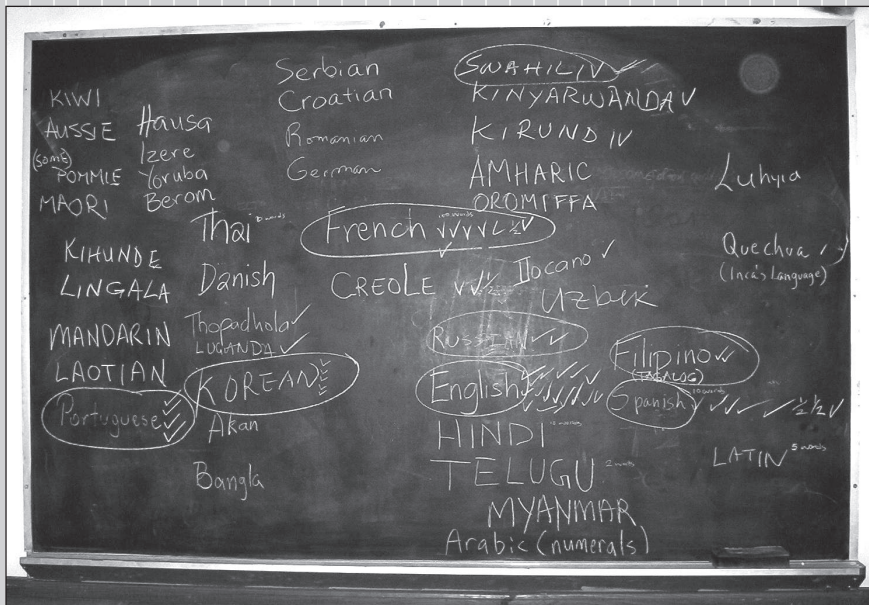 KIWI
AUSSIE
(some)
POMMIE
MAORI
KIHUNDE
LINGALA
MANDARIN
LAOTIAN
Portuguese ✓✓✓✓
Hausa
Izere
Yoruba
Berom
Thai 10 words
Danish
Thopadhola ✓
LUGANDA ✓
KOREAN ✓✓✓✓
Akan
Bangla
Serbian
Croatian
Romanian
German
French 100 words ✓✓✓✓✓ ½ ✓
✓
CREOLE ✓✓½
SWAHILI ✓✓
KINYARWANDA ✓
KIRUNDI ✓
AMHARIC
OROMIFFA
Ilocano ✓
Uzbek
RUSSIAN ✓✓
English ✓✓✓✓✓✓✓✓
HINDI
TELUGU 2 words
MYANMAR
Arabic (numerals)
Luhyia
Quechua ✓
(Inca's Language)
Filipino ✓✓
(TAGALOG)
Spanish 10 words ✓✓✓✓ ½ ½ ✓
LATIN 5 words